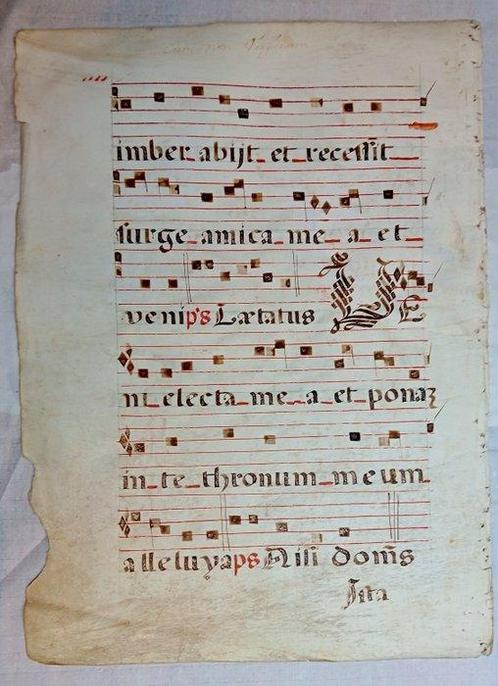 imber abijt et recessit
surge amica me a et
veni ps Lætatus VE
ni electa me a et ponaʒ
in te thronum meum
alleluya ps Nisi doms̃
Ista